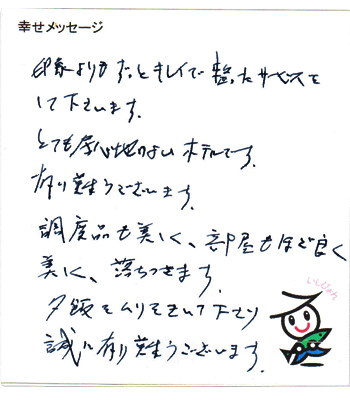 幸せメッセージ
印象よりもずっとキレイで整ったサービスを
して下さいます。
とても居心地のよいホテルです。
有り難うございます。
調度品も美しく、部屋もほど良く
美しく、落ちつきます。
夕飯をムリをきいて下さり
誠に有り難うございます。